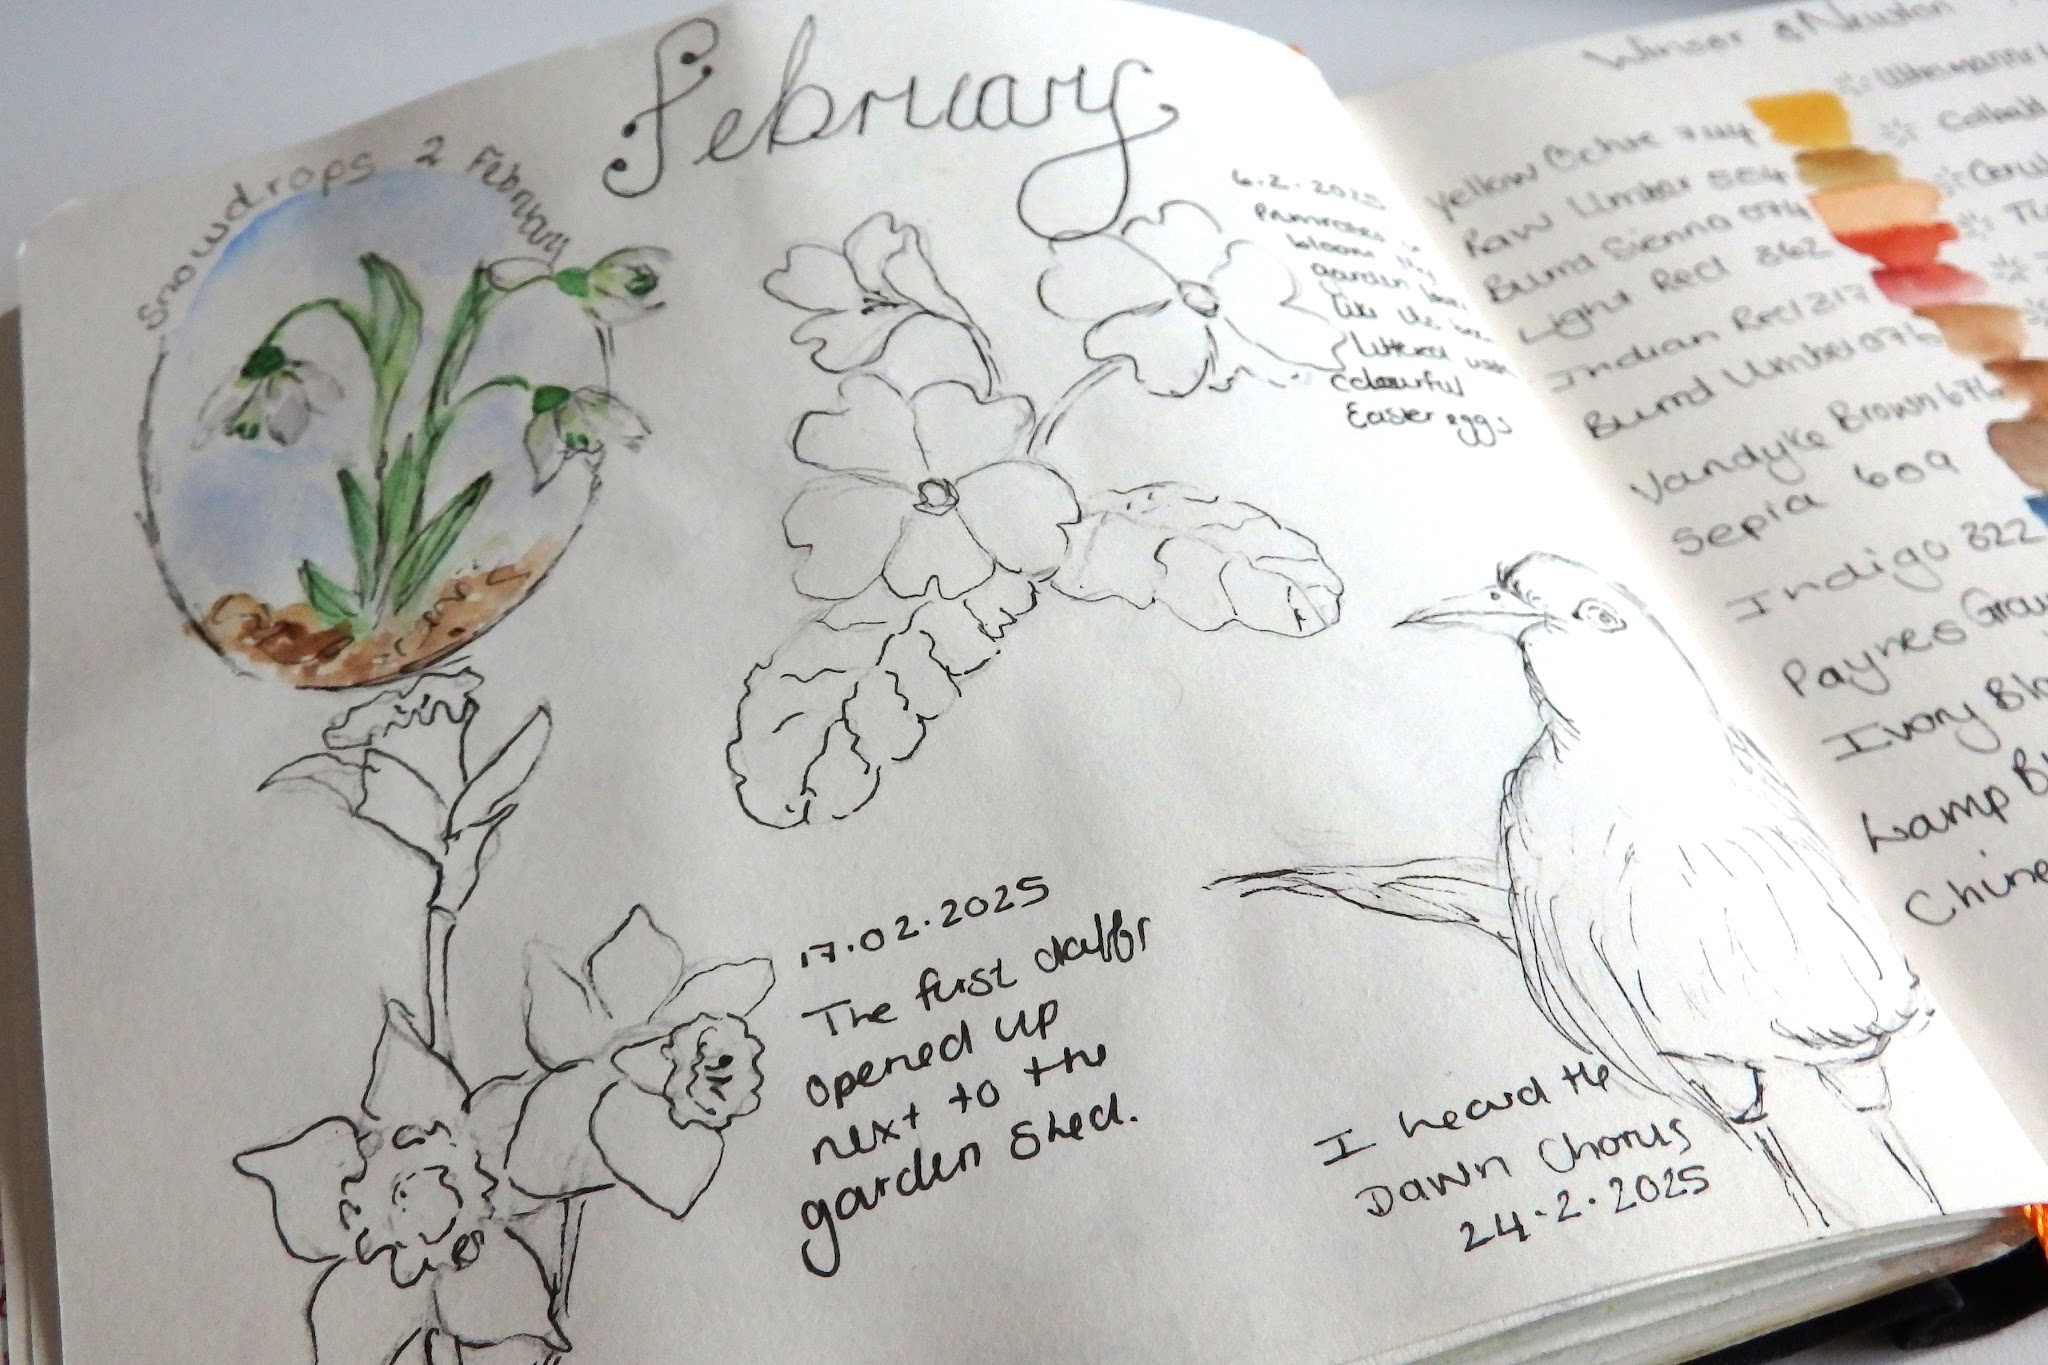 February
Snowdrops 2 February
6.2.2025
Primroses in
bloom my
garden
like the
with
colourful
Easter eggs
17.02.2025
The first daffs
opened up
next to the
garden shed.
I heard the
Dawn Chorus
24.2.2025
Winsor & Newton
Yellow Ochre 744
Raw Umber 554
Burnd Sienna 074
Light Red 362
Indian Red 317
Burnd Umber 076
Vandyke Brown 676
Sepia 609
Indigo 322
Paynes
Ivory
Lamp